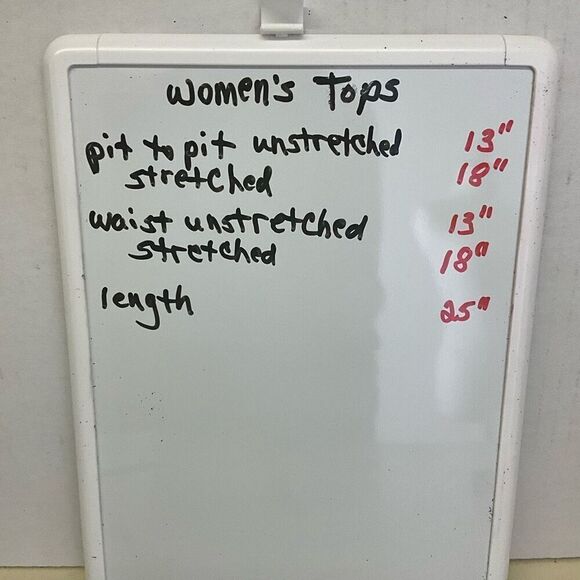 women's Tops
pit to pit unstretched 13"
stretched 18"
waist unstretched 13"
stretched 18"
length 25"